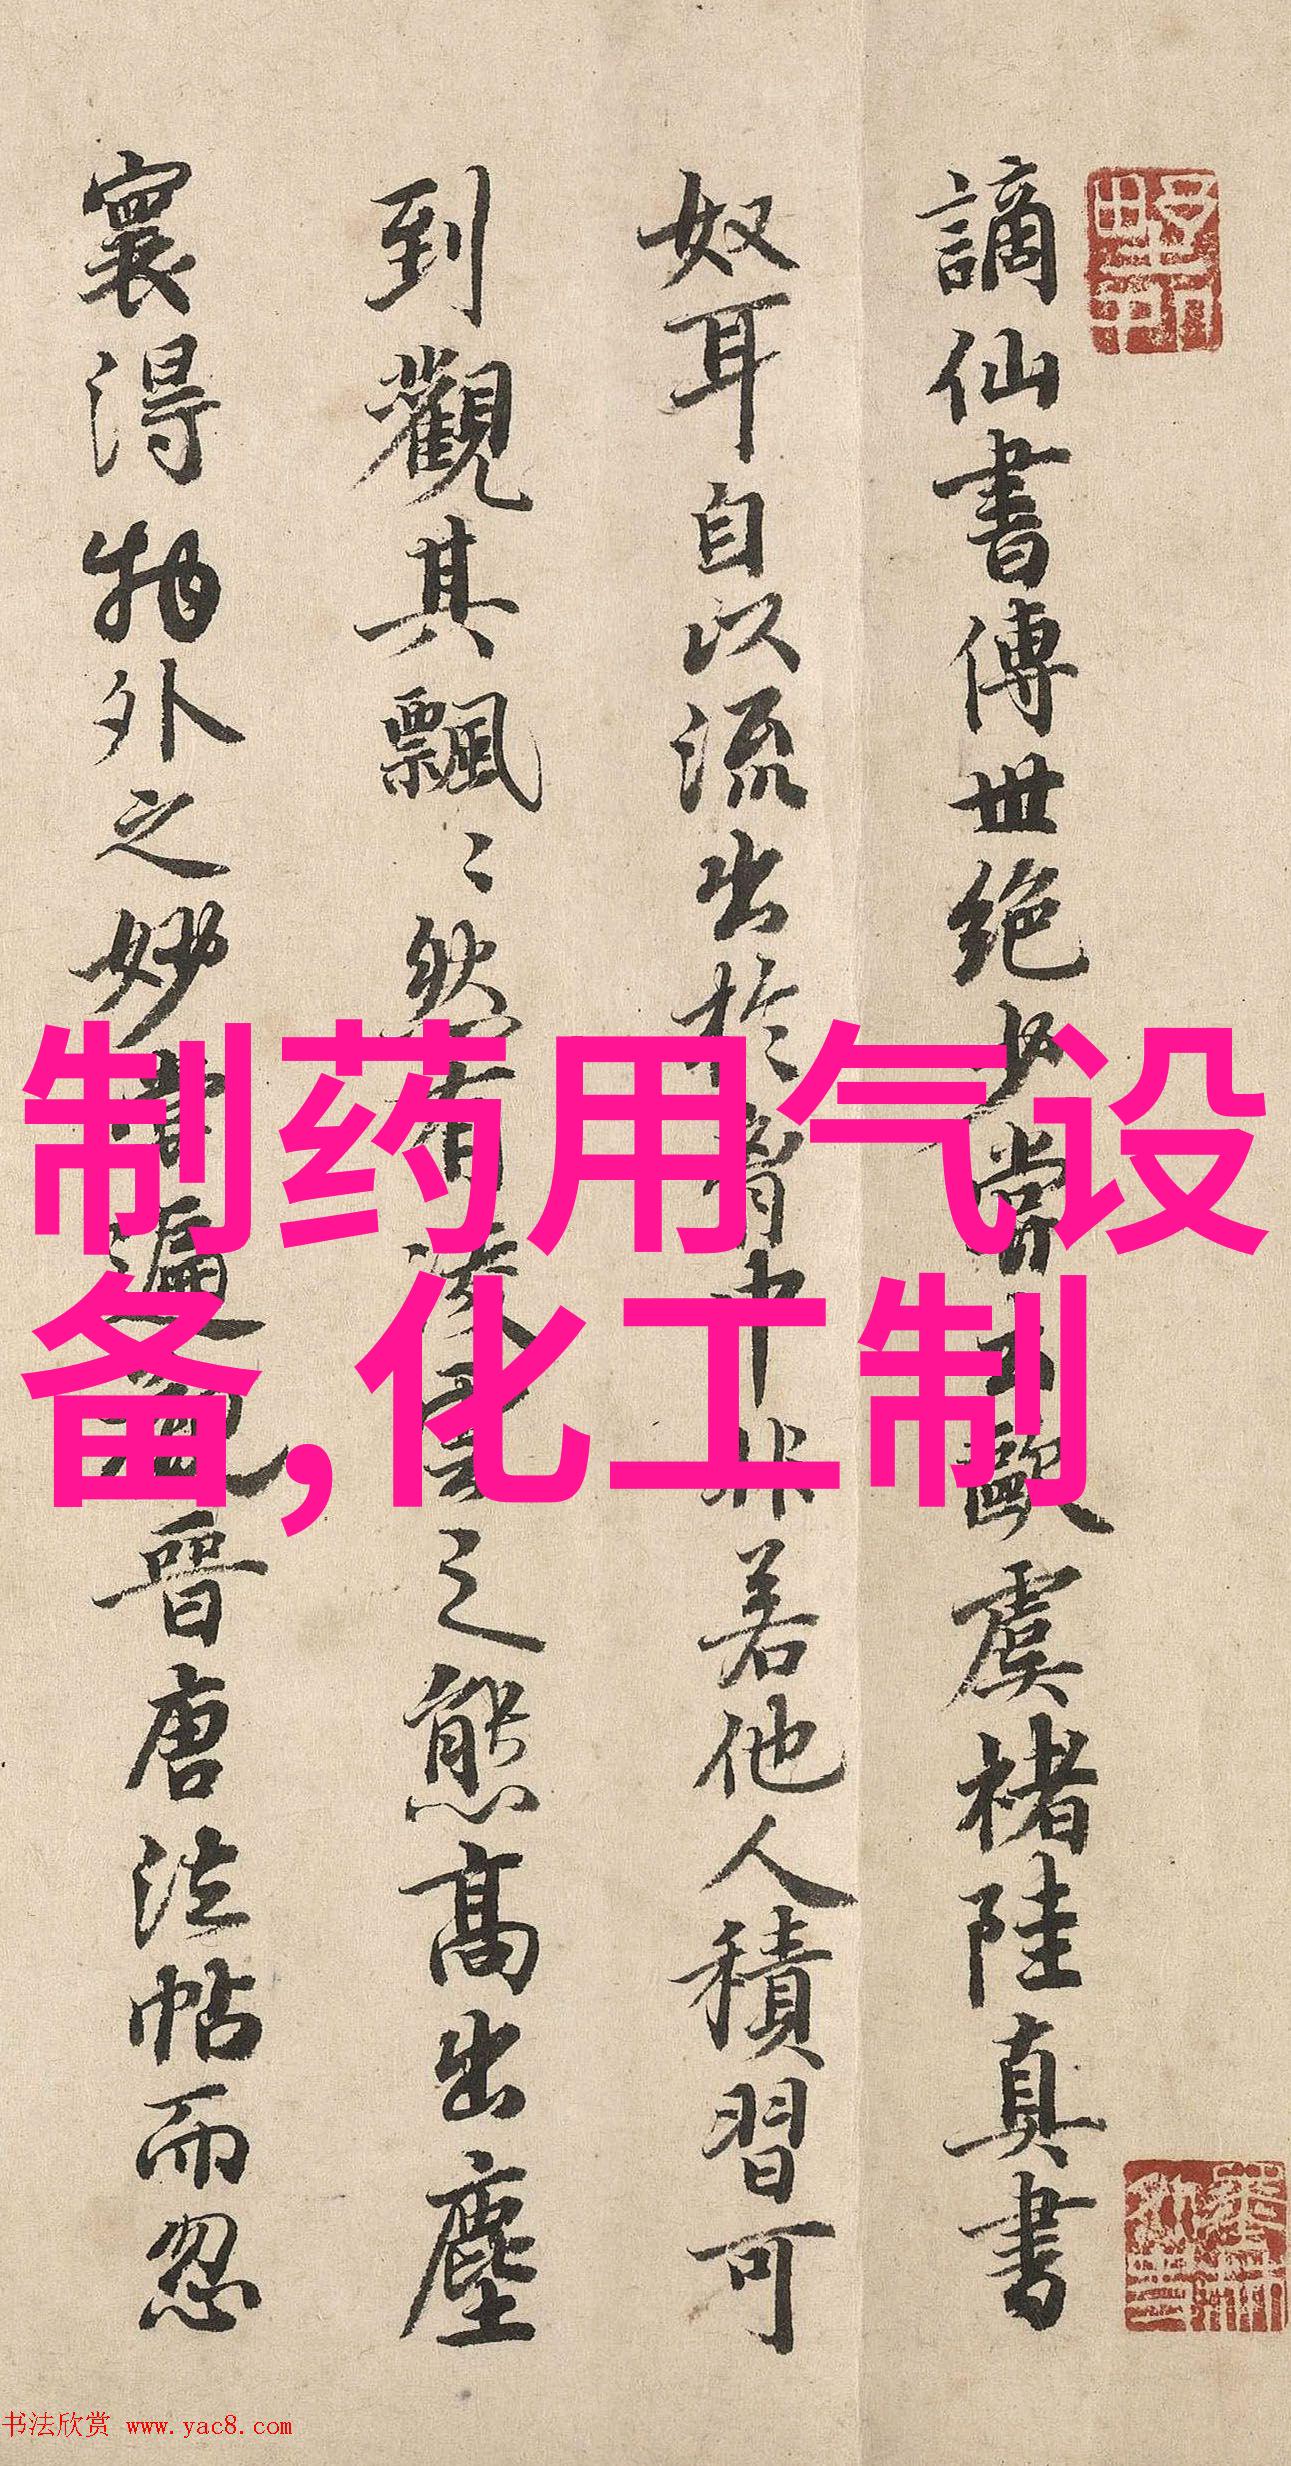 謫仙書傳世絕少嘗云歐虞褚陸真書
奴耳自以流出於胷中非若他人積習可
到觀其飄〻然有凌雲之態高出塵
寰得物外之妙嘗遍觀晉唐法帖而忽
制药用气设
备,化工制
书法欣赏 www.yac8.com